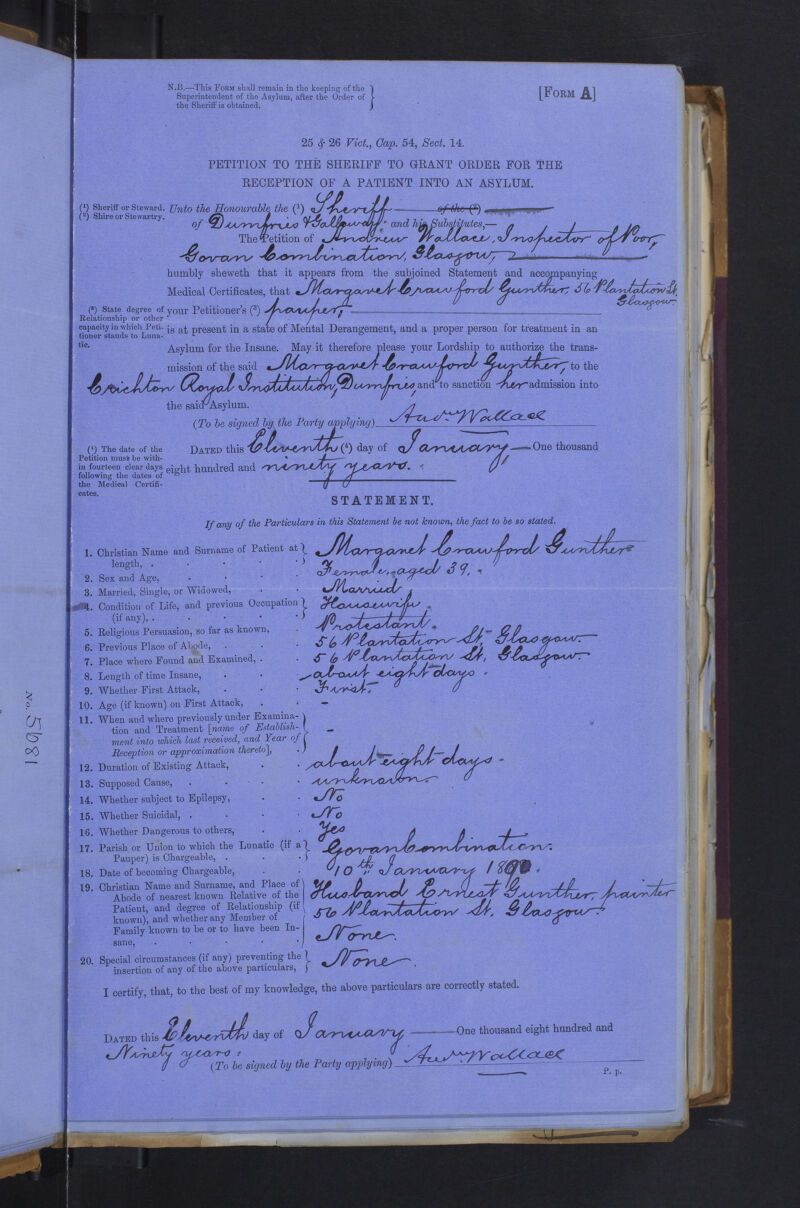 N.B.—This Form shall remain in the keeping of the
Superintendent of the Asylum, after the Order of
the Sheriff is obtained.
[Form A]
25 & 26 Vict., Cap. 54, Sect. 14.
PETITION TO THE SHERIFF TO GRANT ORDER FOR THE
RECEPTION OF A PATIENT INTO AN ASYLUM.
(1) Sheriff or Steward.
(2) Shire or Stewartry.
Unto the Honourable the (1) Sheriff of the (2)
of Dumfries & Galloway and his Substitutes,—
The Petition of Andrew Wallace, Inspector of Poor,
Govan Combination, Glasgow,
humbly sheweth that it appears from the subjoined Statement and accompanying
Medical Certificates, that Margaret Crawford Gunther, 56 Plantation St
Glasgow
(3) State degree of
Relationship or other
capacity in which Peti-
tioner stands to Luna-
tic.
your Petitioner's (3) pauper,
is at present in a state of Mental Derangement, and a proper person for treatment in an
Asylum for the Insane. May it therefore please your Lordship to authorize the trans-
mission of the said Margaret Crawford Gunther, to the
Crichton Royal Institution, Dumfries, and to sanction her admission into
the said Asylum.
(To be signed by the Party applying) Andw Wallace
(4) The date of the
Petition must be with-
in fourteen clear days
following the dates of
the Medical Certifi-
cates.
Dated this Eleventh (4) day of January, — One thousand
eight hundred and ninety years.
STATEMENT.
If any of the Particulars in this Statement be not known, the fact to be so stated.
1. Christian Name and Surname of Patient at length, . Margaret Crawford Gunther
2. Sex and Age, Female, aged 39.
3. Married, Single, or Widowed, Married
4. Condition of Life, and previous Occupation (if any), . Housewife.
5. Religious Persuasion, so far as known, Protestant.
6. Previous Place of Abode, 56 Plantation St. Glasgow.
7. Place where Found and Examined, 56 Plantation St. Glasgow.
8. Length of time Insane, about eight days.
9. Whether First Attack, First.
10. Age (if known) on First Attack, –
11. When and where previously under Examina-
tion and Treatment [name of Establish-
ment into which last received, and Year of
Reception or approximation thereto], –
12. Duration of Existing Attack, about eight days.
13. Supposed Cause, unknown.
14. Whether subject to Epilepsy, No
15. Whether Suicidal, No
16. Whether Dangerous to others, Yes
17. Parish or Union to which the Lunatic (if a Pauper) is Chargeable, . Govan Combination.
18. Date of becoming Chargeable, 10th January 1890.
19. Christian Name and Surname, and Place of
Abode of nearest known Relative of the
Patient, and degree of Relationship (if
known), and whether any Member of
Family known to be or to have been In-
sane,
Husband Ernest Gunther, painter
56 Plantation St. Glasgow.
None.
20. Special circumstances (if any) preventing the insertion of any of the above particulars, None.
I certify, that, to the best of my knowledge, the above particulars are correctly stated.
Dated this Eleventh day of January — One thousand eight hundred and
Ninety years.
(To be signed by the Party applying) Andw Wallace
P. p.
No. 5681